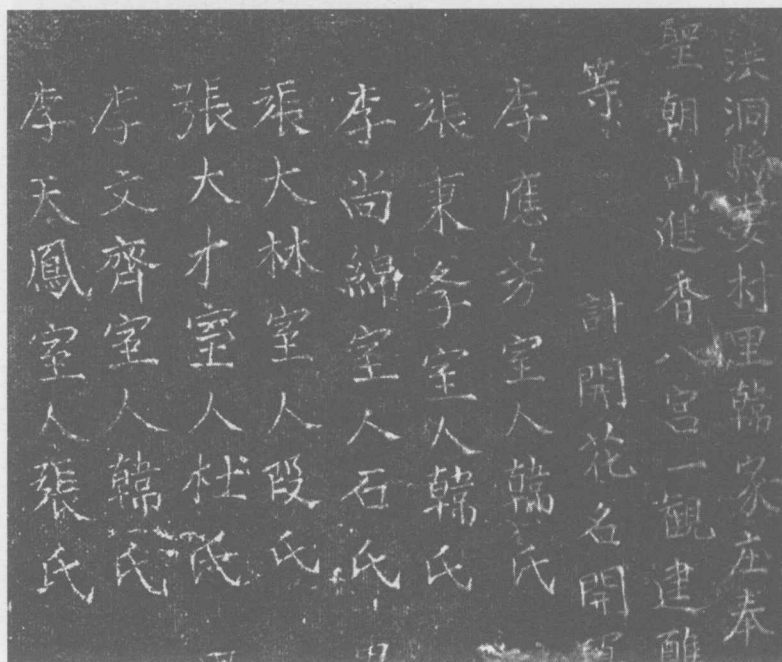 洪洞縣婁村里韓家庄奉
聖朝山進香八宮一觀建醮
等 計開花名開
李應芳室人韓氏
張東孝室人韓氏
李尚綿室人石氏
張大林室人段氏
張大才室人杜氏
李文齊室人韓氏
李天鳳室人張氏